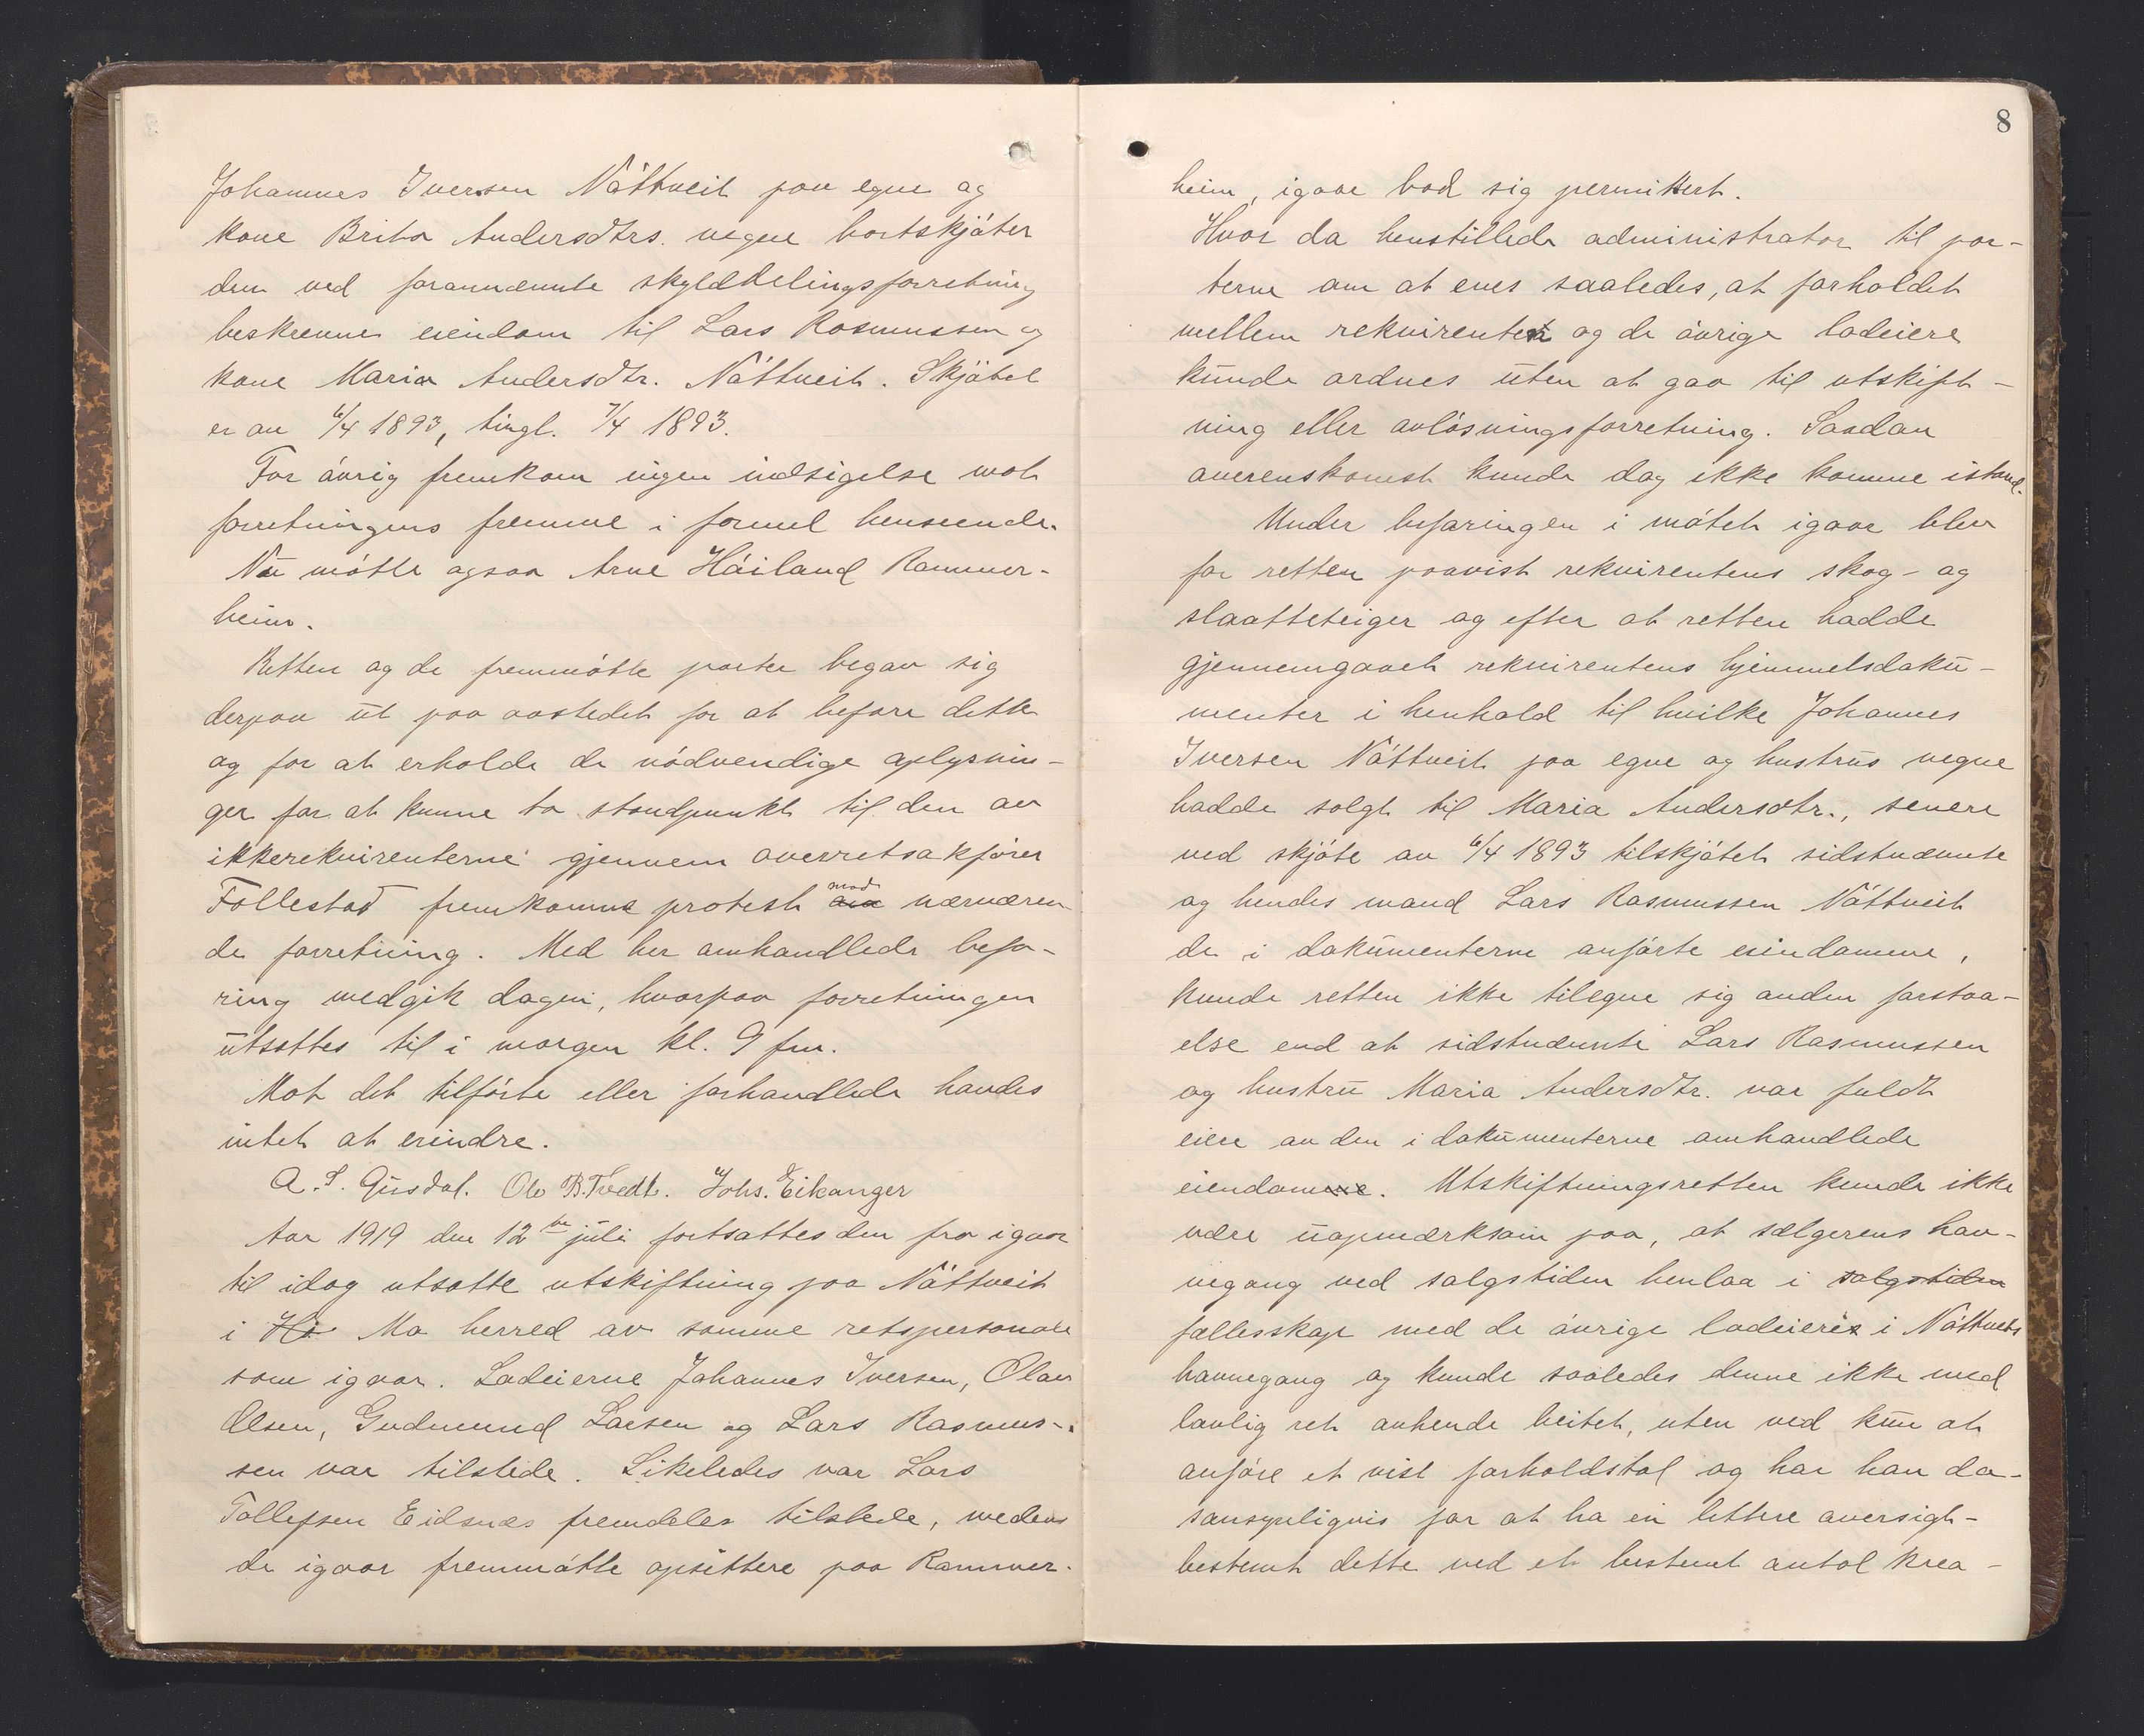 Johannes Iversen Nåttveit paa egne og
kone Brita Andersdtrs. vegne bortskjøter
den ved forannævnte skylddelingsforretning
beskrevne eiendom til Lars Rasmussen og
kone Maria Andersdtr. Nåttveit. Skjøtet
er av 6/4 1893, tingl. 7/4 1893.
For øvrig fremkom ingen indsigelse mot
forretningens fremme i formel henseende.
Nu møtte ogsaa Arne Høiland Rammer-
heim.
Retten og de fremmøtte parter begav sig
derpaa ut paa aastedet for at befare dette
og for at erholde de nødvendige oplysnin-
ger for at kunne ta standpunkt til den av
ikkerekvirenterne gjennem overretsakfører
Follestad fremkomne protest mod nærværen
de forretning. Med her omhandlede befa-
ring medgik dagen, hvorpaa forretningen
utsattes til i morgen kl. 9 fm.
Mot det tilførte eller forhandlede havdes
intet at erindre.
A. S. Gusdal. Ole B. Tvedt. Johs. Eikanger
Aar 1919 den 12te juli fortsattes den fra igaar
til idag utsatte utskiftning paa Nåttveit
i Ho Mo herred av samme retspersonale
som igaar. Lodeierne Johannes Iversen, Olav
Olsen, Gudmund Larsen og Lars Rasmus-
sen var tilstede. Likeledes var Lars
Tollefsen Eidsnæs fremdeles tilstede, medens
de igaar fremmøtte opsittere paa Rammer-
8
heim, igaar bad sig permittert.
Hvor da henstillede administrator til par-
terne om at enes saaledes, at forholdet
mellem rekvirenten og de øvrige lodeiere
kunde ordnes uten at gaa til utskift-
ning eller avløsningsforretning. Saadan
overenskomst kunde dog ikke komme istand.
Under befaringen i møtet igaar blev
for retten paavist rekvirentens skog- og
slaatteteiger og efter at retten hadde
gjennemgaaet rekvirentens hjemmelsdoku-
menter i henhold til hvilke Johannes
Iversen Nåttveit paa egne og hustrus vegne
hadde solgt til Maria Andersdtr., senere
ved skjøte av 6/4 1893 tilskjøtet sidstnævnte
og hendes mand Lars Rasmussen Nåttveit
de i dokumenterne anførte eiendomme,
kunde retten ikke tilegne sig anden forstaa-
else end at sidstnævnte Lars Rasmussen
og hustru Maria Andersdtr. var fuldt
eiere av den i dokumenterne omhandlede
eiendom. Utskiftningsretten kunde ikke
være uopmærksom paa, at sælgerens hav-
negang ved salgstiden henlaa i salgstiden
fællesskap med de øvrige lodeiere i Nåttveits
havnegang og kunde saaledes denne ikke med
lovlig ret avhende beitet, uten ved kun at
anføre et vist forholdstal og har han da
sansynligvis for at ha en lettere oversigt-
bestemt dette ved et bestemt antal krea-